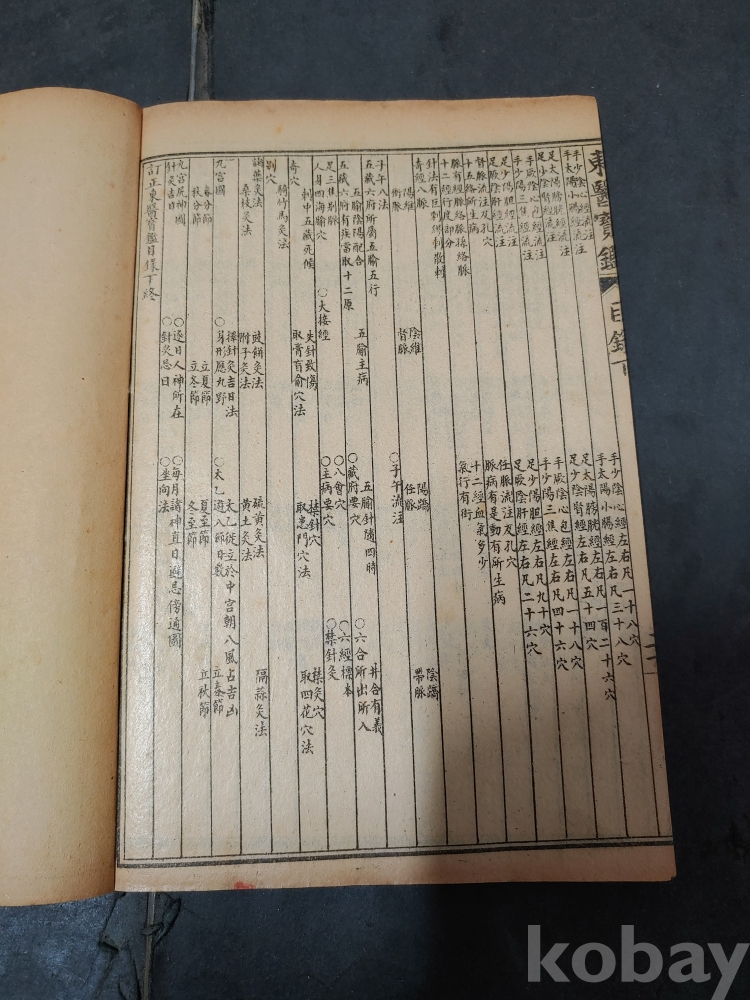 東醫寶鑑 目錄下
手少陰心經流注 手少陰心經左右凡一十八穴
手太陽小腸經流注 手太陽小腸經左右凡三十八穴
足太陽膀胱經流注 足太陽膀胱經左右凡一百二十六穴
足少陰腎經流注 足少陰腎經左右凡五十四穴
手厥陰心包經流注 手厥陰心包經左右凡一十八穴
手少陽三焦經流注 手少陽三焦經左右凡四十六穴
足少陽胆經流注 足少陽胆經左右凡九十穴
足厥陰肝經流注 足厥陰肝經左右凡二十六穴
督脈流注及孔穴 任脈流注及孔穴
十五絡脈所生病 脈病有是動有所生病
脈有經脈絡脈孫絡脈 十二經血氣多少
十二經行度部分 氣行有街
針法有巨刺繆刺散刺
奇經八脈 陽維 陰維 陽蹻 陰蹻
衝脈 督脈 任脈 帶脈
子午八法 ○子午流注
五藏六府所屬五腧五行 五腧主病 五腧針隨四時 井合有義
五腧陰陽配合 ○藏府要穴 ○六合所出所入
五藏六府有疾當取十二原 ○八會穴 ○六經標本
人身四海腧穴 ○大接經 ○主病要穴 ○禁針灸
足三焦別脈
刺中五藏死候 失針致傷 禁針穴 禁灸穴
奇穴 取膏肓俞穴法 取患門穴法 取四花穴法
騎竹馬灸法
別穴
豉餅灸法 硫黃灸法 隔蒜灸法
桑枝灸法 附子灸法 黃土灸法
擇針灸吉日法 太乙徙立於中宮朝八風占吉凶
九宮圖 ○身形應九野 ○太乙遊八節日數 立春節
春分節 立夏節 夏至節 立秋節
秋分節 立冬節 冬至節
九宮尻神圖 ○逐日人神所在 ○每月諸神直日避忌傍通圖
針灸吉日 ○針灸忌日 ○坐向法
訂正東醫寶鑑目錄下終
kobay